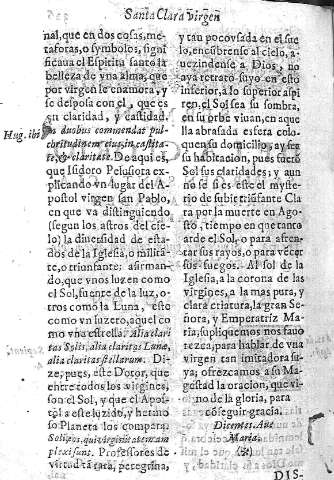 Santa Clara virgen
nal, que en dos cosas, me-
taforas, o symbolos, signi
ficaua el Espiritu santo la
belleza de vna alma, que
por virgen se enamora, y
se desposa con el, que es
su claridad, y castidad.
Hug. ibi
In duobus commendat pul-
chritudinem eius, in castita-
te, & claritate. De aqui es,
que Isidoro Pelusiota ex-
plicando vn lugar del A-
postol virgen san Pablo,
en que va distinguiendo
(segun los astros del cie-
lo) la diuersidad de esta-
dos de la Iglesia, o milita-
te, o triunfante: afirman-
do, que vnos luzen como
el Sol, fuente de la luz, o-
tros como la Luna, este
como vn luzero, aquel co
mo vna estrella. Alia clari
tas Solis, alia claritas Lunæ,
alia claritas stellarum. Di-
ze, pues, este Dotor, que
entre todos los virgines,
son el Sol, y que el Apos-
tol a este luzido, y hetano
so Planeta los compara:
Soli eos, qui virginitatem am
plexi sunt. Professores de
virtud tã rara, peregrina,
y tan pocovsada en el sue
lo, encúbrense al cielo, a-
uezindense a Dios, no
aya retrato suyo en esto
inferior, a lo superior aspi
ren, el Sol sea su sombra,
en su orbe viuan, en aque
lla abrasada esfera colo-
quen su domicilio, ay sea
su habitacion, pues fuerõ
Sol sus claridades; y aun
no se si es este el myste-
rio de subir triũfante Cla
ra por la muerte en Agos-
to, tiempo en que tanto
arde el Sol, o para afren-
tar sus rayos, o para vẽcer
sus fuegos. Al sol de la
Iglesia, a la corona de las
virgines, a la mas pura, y
clara criatura, la gran Se-
ñora, y Emperatriz Ma-
ria, supliquemos nos fauo
rezca, para hablar de vna
virgen tan imitadora su-
ya, ofrezcamos a su Ma-
gestad la oracion, que vi-
no de la gloria, para
cõseguir gracia.
Dicemos. Aue
Maria.
DIS-